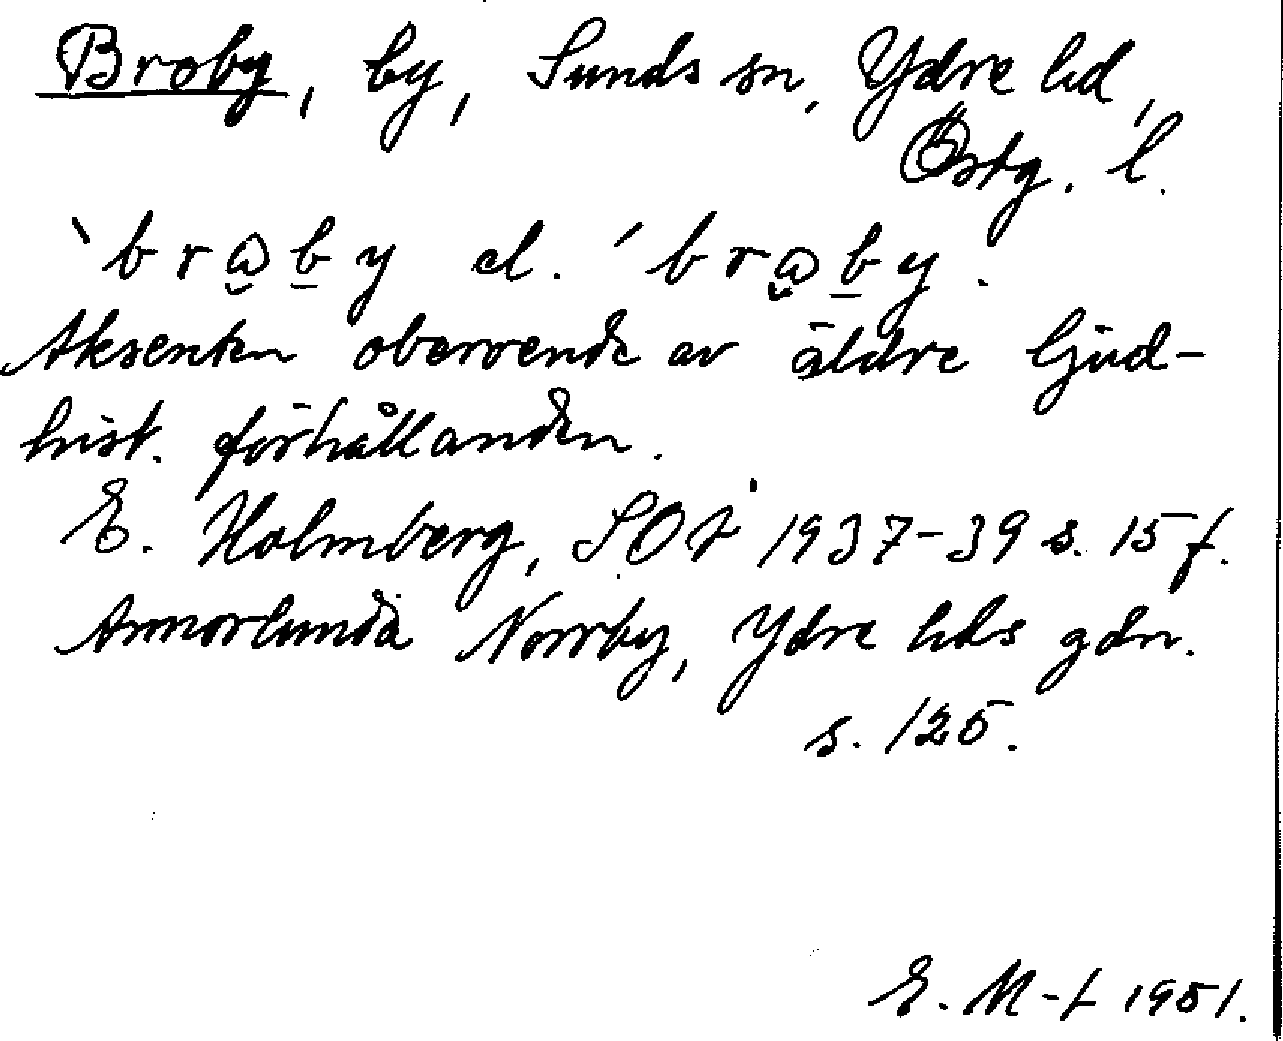 Broby, by, Sunds sn, Ydre hd,
Östg. l.
`brωby el. ´brωby.
Aksenten oberoende av äldre ljud-
hist. förhållanden.
E. Holmberg, SOÅ 1937-39 s. 15 f.
Ydre hds gdn.
s. 125.
E. M-t 1951.